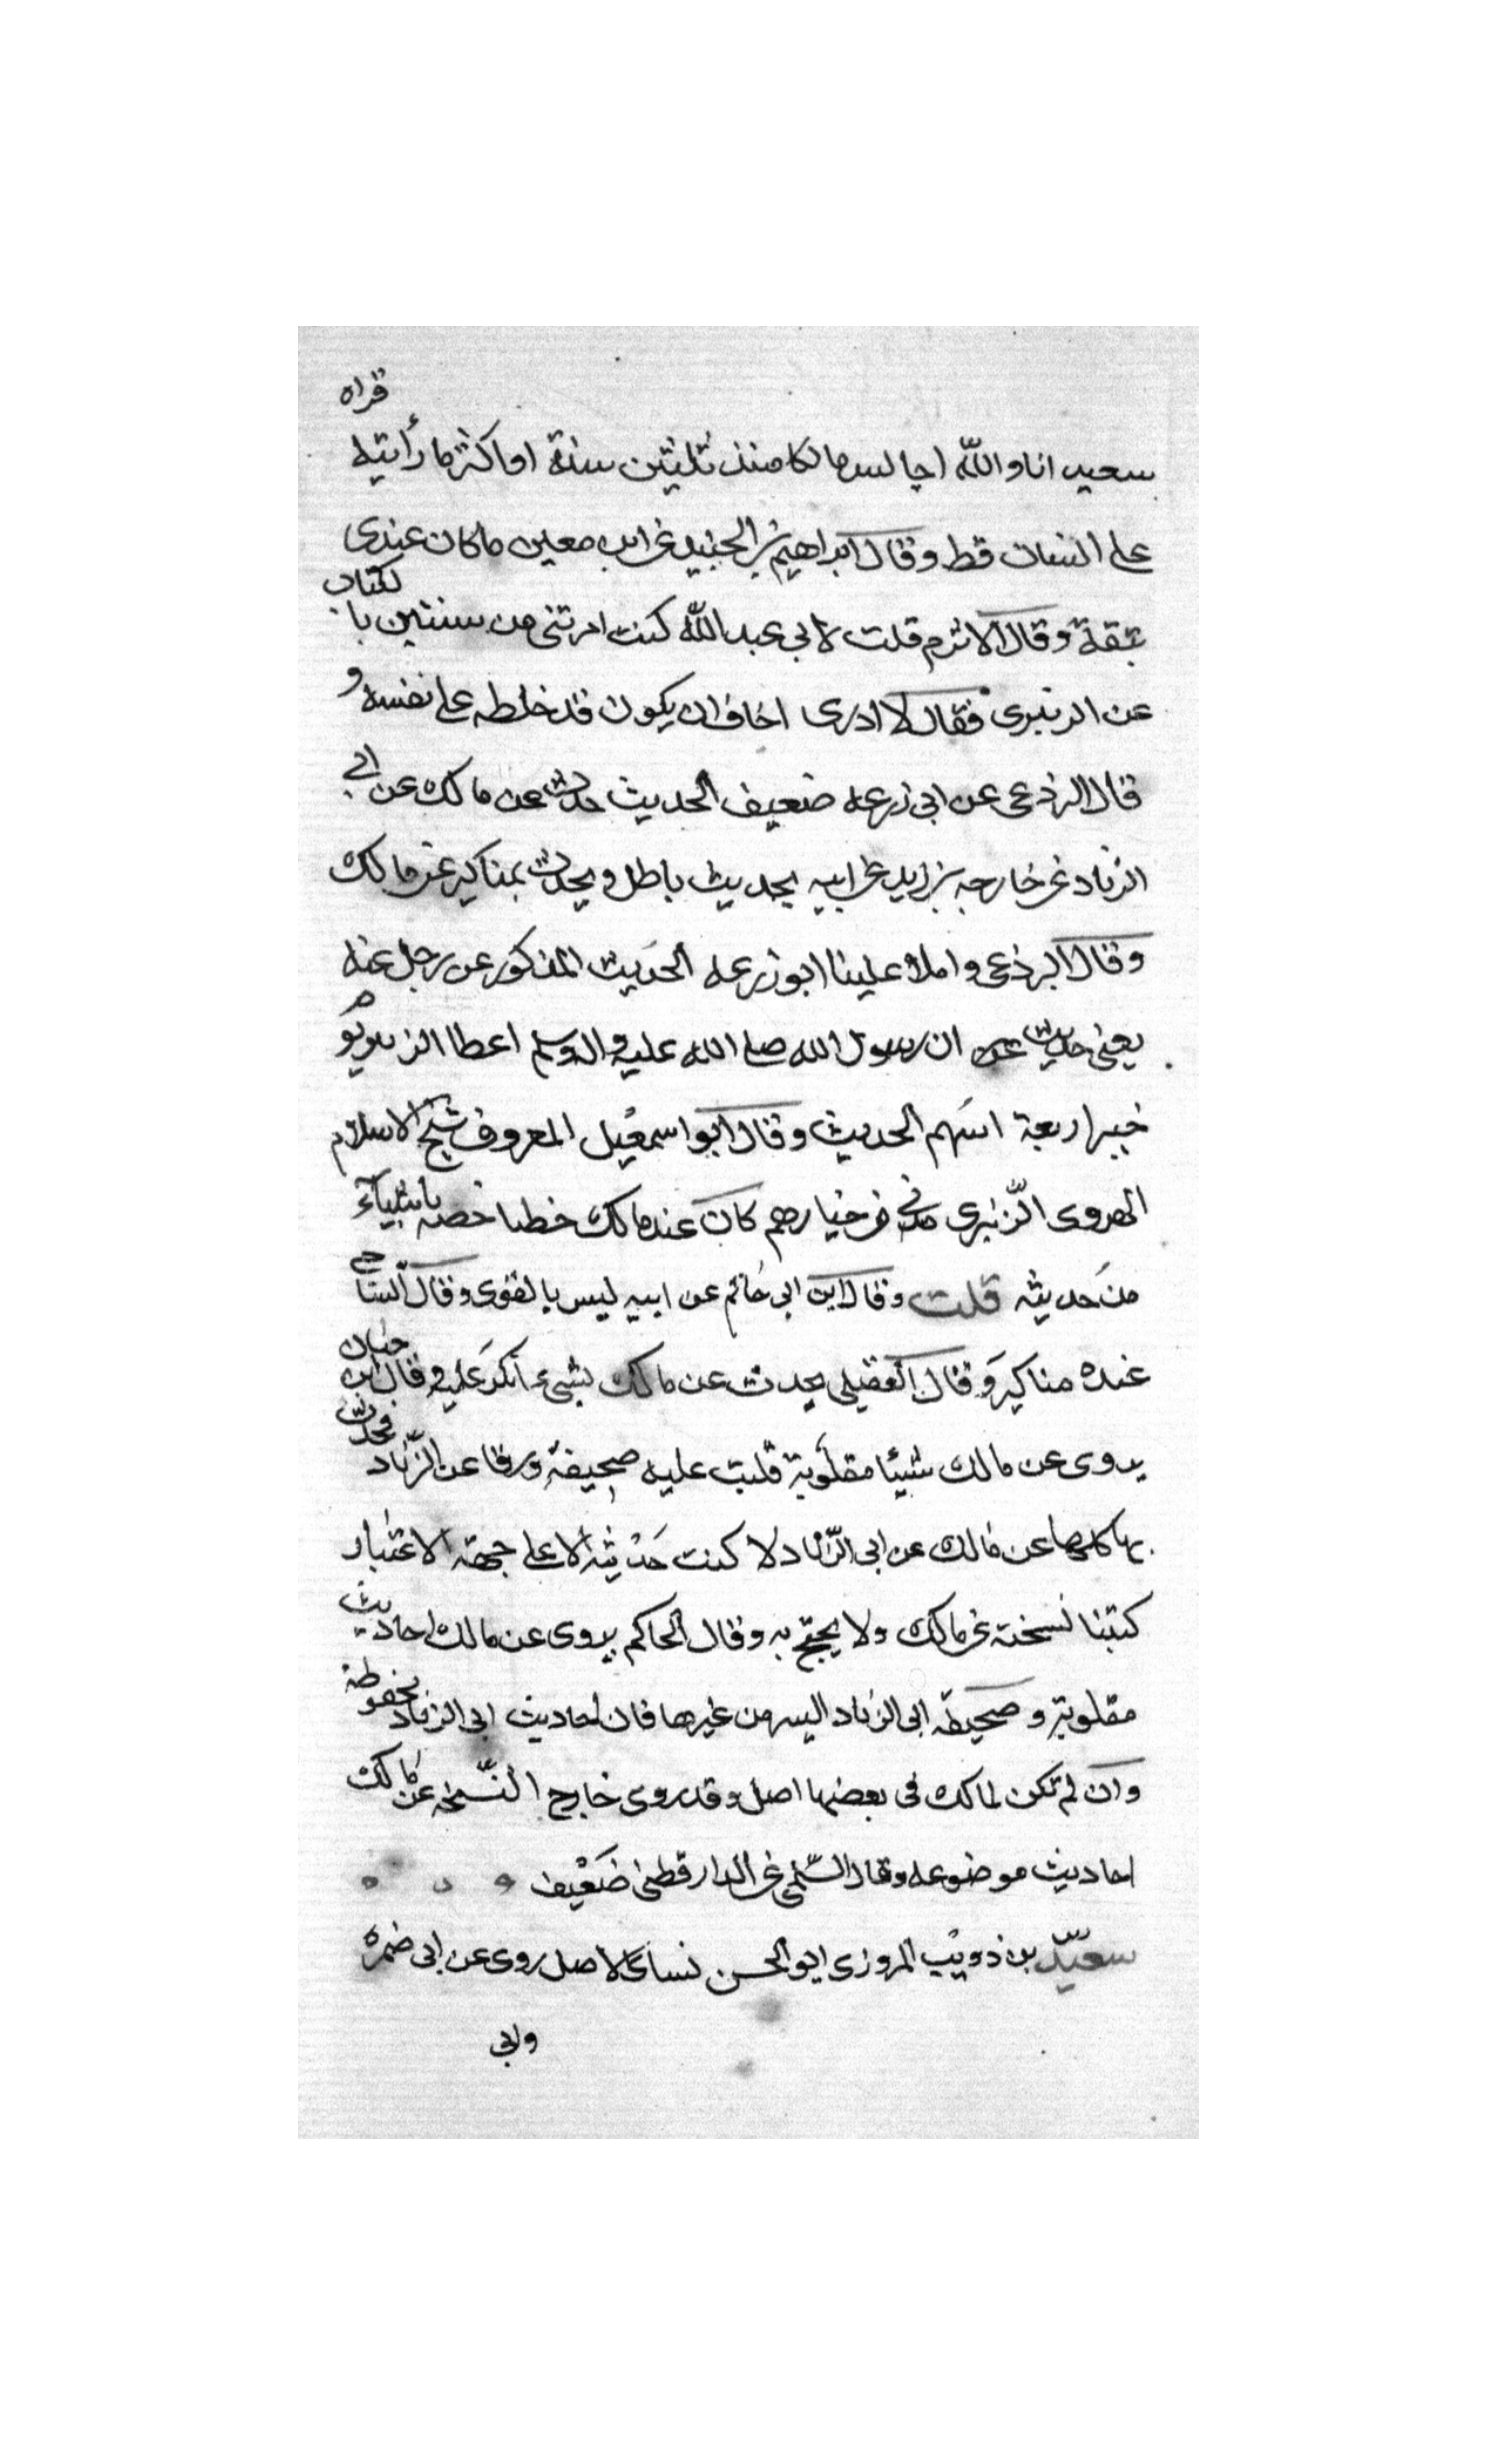 سعيد انا والله اجالس مالكا منذ ثلثين سنة او اكثر ما رأيته قراه
على انسان قط وقال ابراهيم بن الجنيد عن ابن معين ما كان عندى
بثقة وقال الاثرم قلت لابي عبد الله كنت امرتنى من سنتين با لكتاب
عن الزنبرى فقال لا ادرى اخاف ان يكون قد خلطه على نفسه و
قال البرذعى عن ابى زرعه ضعيف الحديث حدث عن مالك عن ابي
الزناد عن خارجه بن زيد عن ابيه بحديث باطل ويحدث بمناكير عن مالك
وقال البرذعى واملاه علينا ابو زرعه الحديث المذكور عن رجل عنه
يعنى حديث ان رسول الله صلى الله عليه واله وسلم اعطا الزبير يوم
خيبر اربعة اسهم الحديث وقال ابو اسمعيل المعروف شيخ الاسلام
الهروى الزنبرى مدنى من خيارهم كان عند مالك خصه باشيآء
من حديثه قلت وقال ابن ابى حاتم عن ابيه ليس بالقوى وقال الساجي
عنده مناكير وقال العقيلى يحدث عن مالك بشىء أنكر عليه وقال ابن حبان
يروى عن مالك شيئا مقلوبة قلبت عليه صحيفة ورقا عن الزناد فحدث
بها كلها عن مالك عن ابى الزناد لا كنت حديثه الا على جهة الاعتبار
كتبنا نسخته عن مالك ولا يحتج به وقال الحاكم يروى عن مالك احاديث
مقلوبة وصحيفة ابى الزناد اليسر من غيرها فان احاديث ابى الزناد محفوظة
وان لم تكن لمالك فى بعضها اصل وقد روى خارج النسخه عن مالك
احاديث موضوعه وقال السلمي عن الدارقطنى ضعيف
سعيد بن ذويب المروزى ابو الحسن نساى الاصل روى عن ابى ضمره
وابى